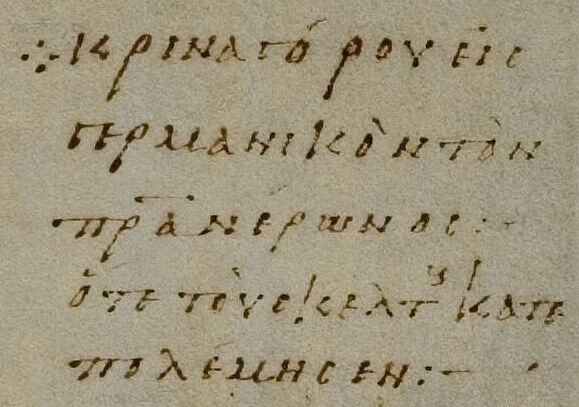 ⁘ κριναγόρου εἰς
γερμανικὸν τὸν
πρ̅α νέρωνος:-
ὅτε τοὺς κελτ̅ου κατε
πολέμησεν:-